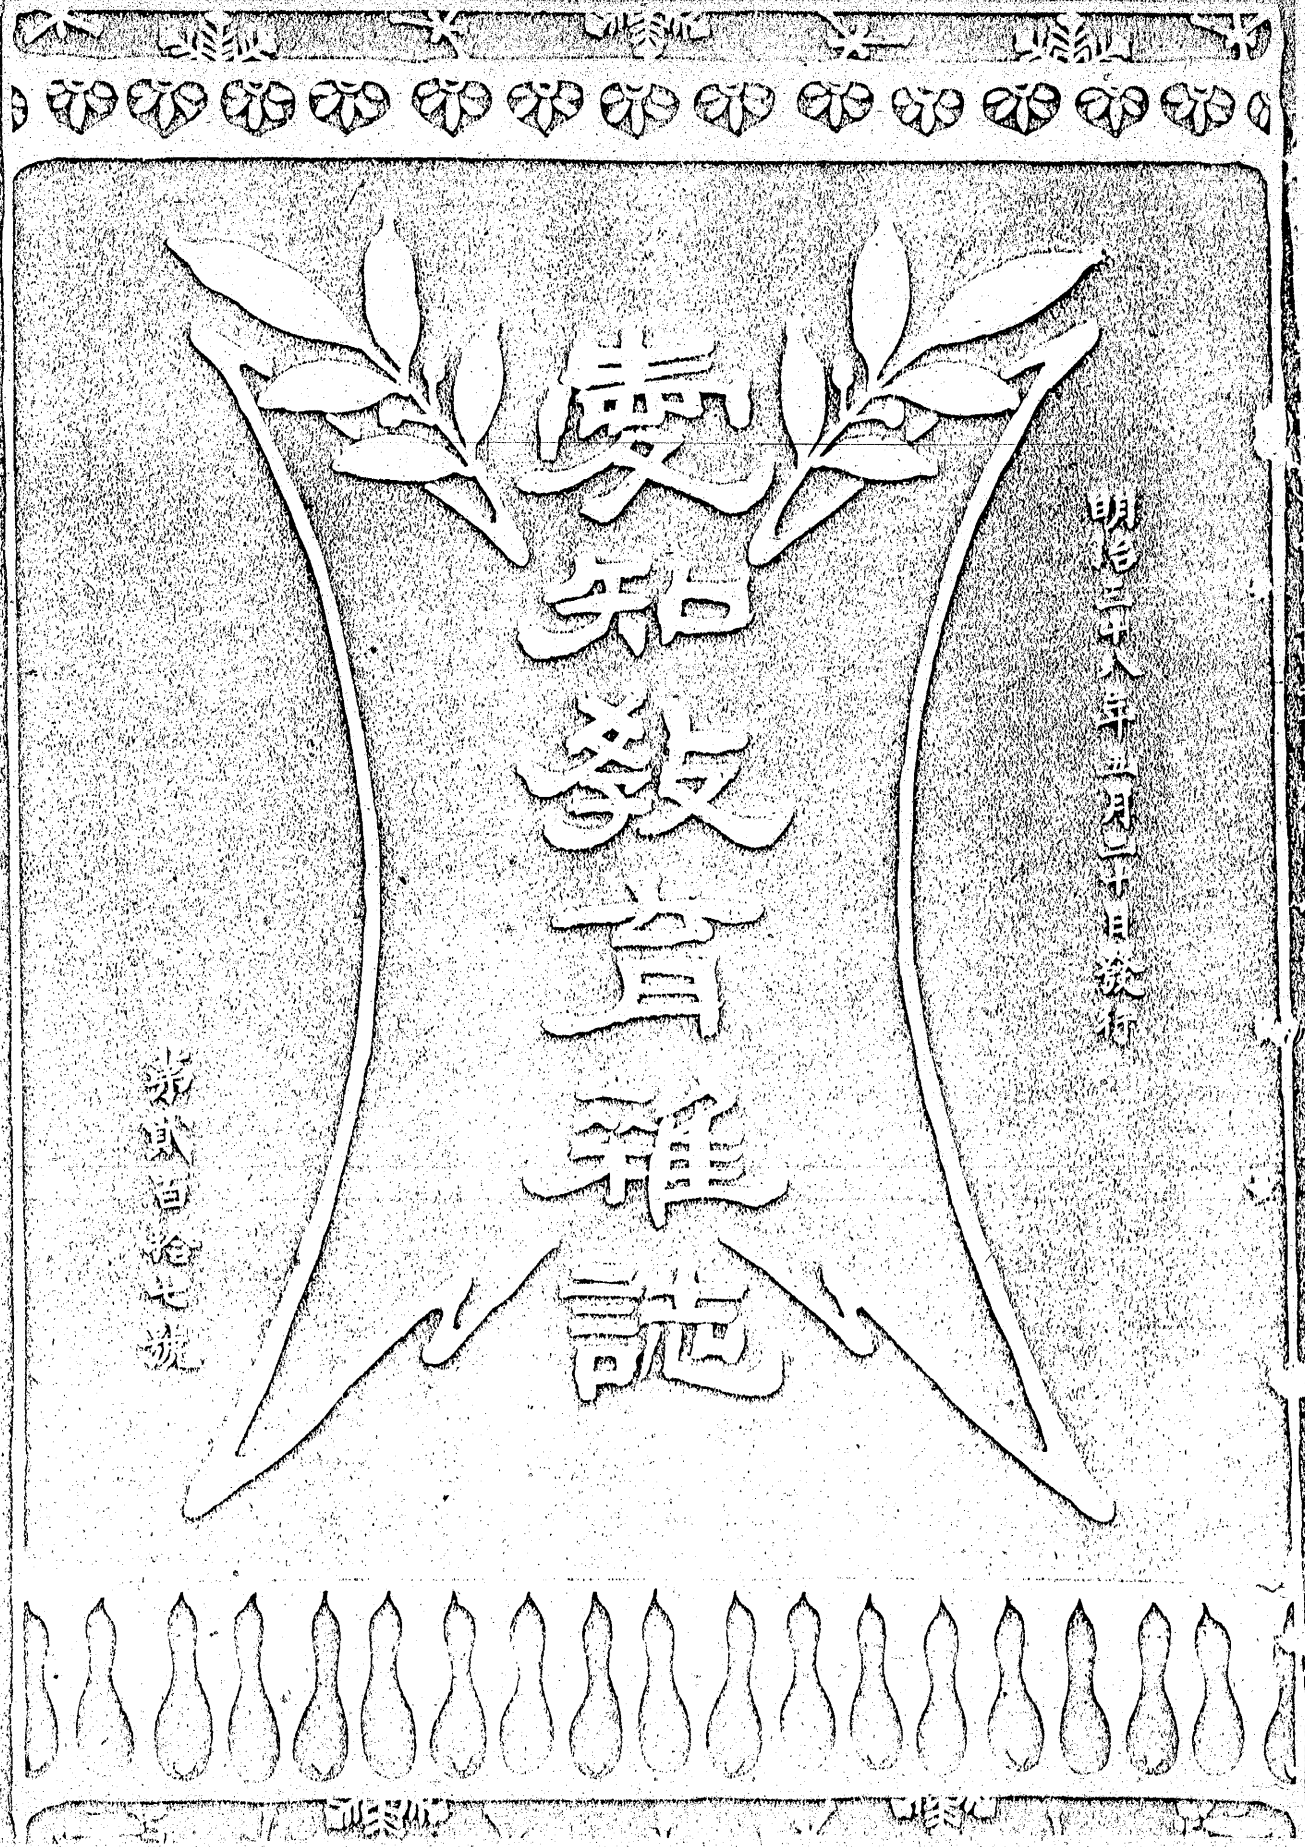 明治三十八年月二十日發行
愛知教育雜誌
第貳百拾七號